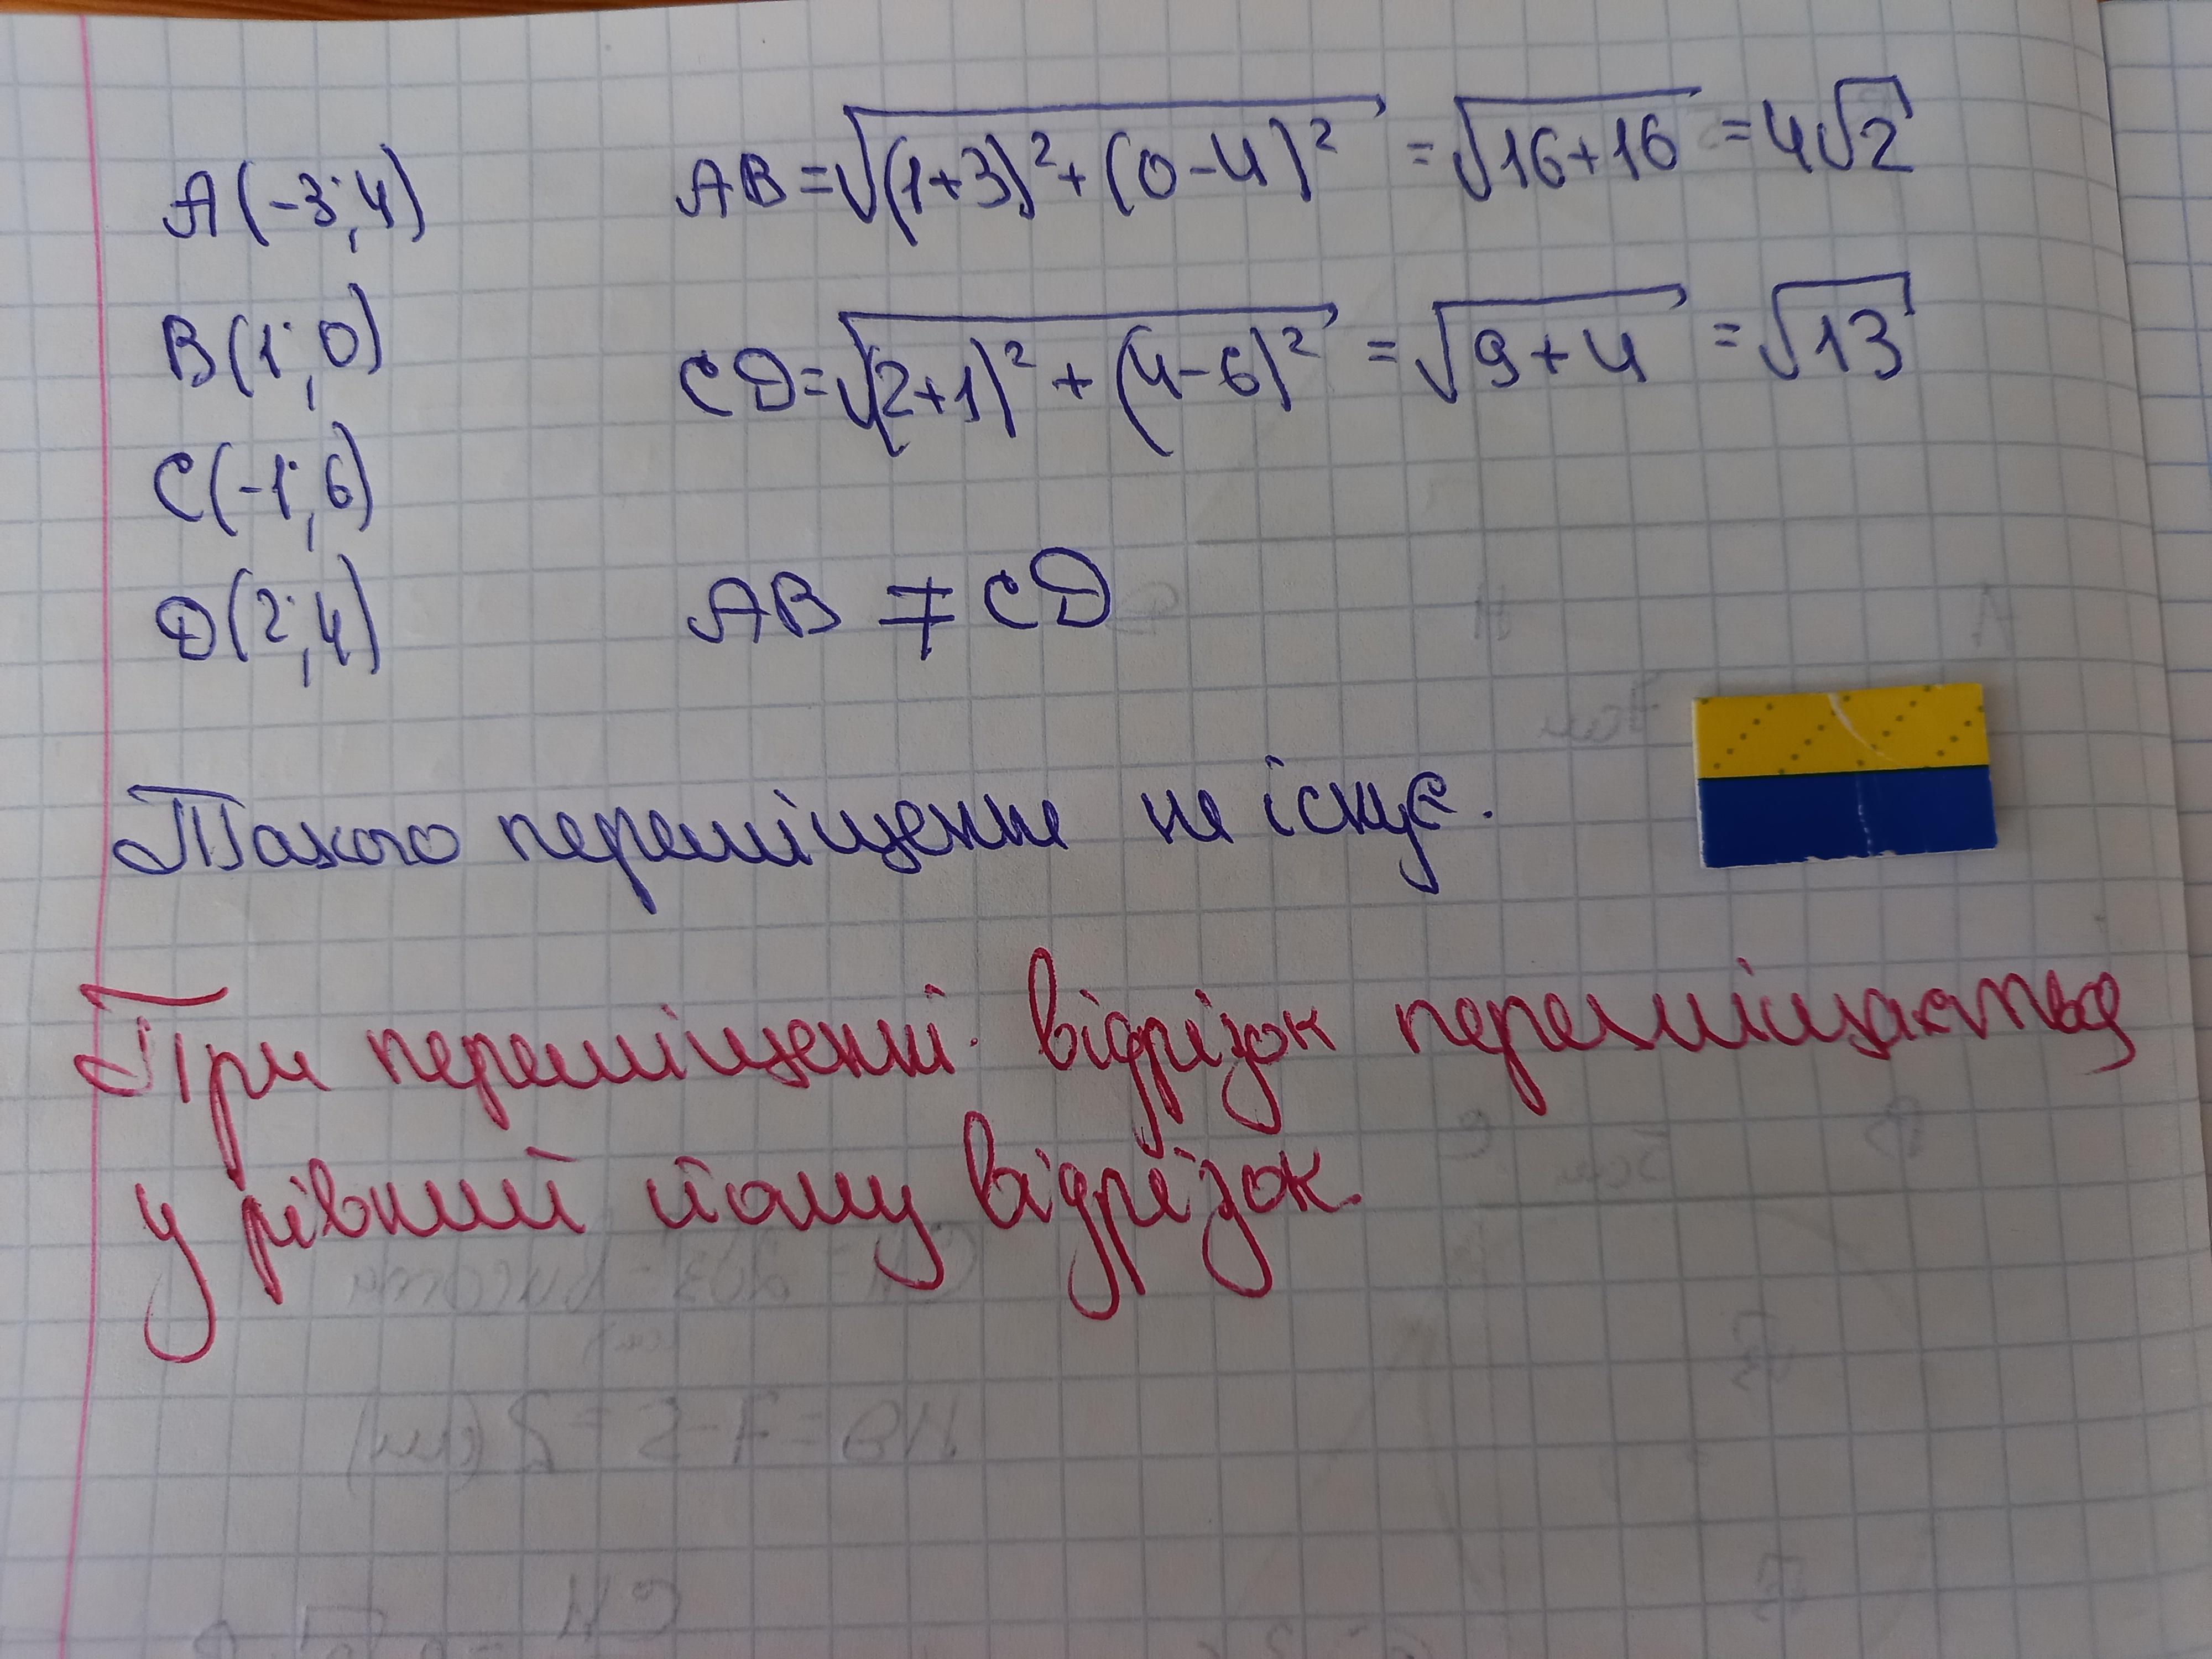 A(-3;4) AB=√((1+3)²+(0-4)²) =√(16+16) =4√2
B(1;0)
C(-1;6) CD=√((2+1)²+(4-6)²) =√(9+4) =√13
D(2;4) AB ≠ CD
Такого переміщення не існує.
При переміщенні відрізок переміщається
у рівний йому відрізок.